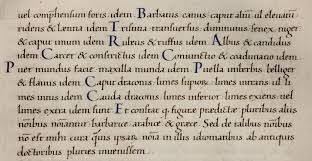 uel comprehensum foris. idem Barbatus canus caput aliũ ul eleuatũ
ridens & Laetitia idem Tristitia transuersus diminutus senex niger
& caput unum idem Rubeus & ruffus idem Albus & candidus
idem Carcer & constrictus idem Coniunctio & coadunatio idem
Puer mundus facie maxilla munda idem Puella umbriosus belliger
& flauus idem Caput draconis limes superior. limes intrans ul li
mes intus idem Cauda draconis limes inferior limes exiens uel
limes extra idem sunt Et constat q figuræ prædictæ pluribus aliis
nõibus noĩantur barbaræ arabicæ & græcæ. Sed de talibus nõibus
nõ est mihi cura quuis ipsa nõia in illis idiomatibus ab antiquis
doctoribus pluries inuenissem.